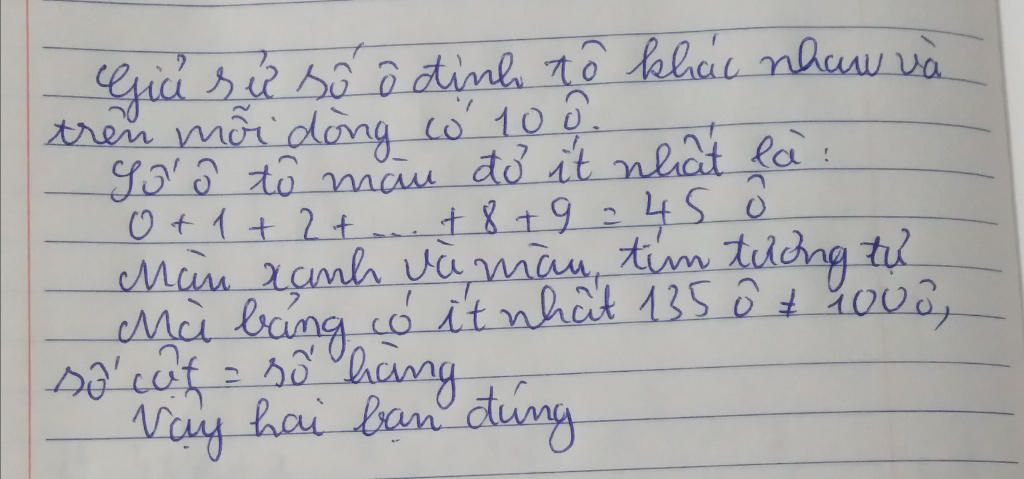 Giả sử số ô định tô khác nhau và
trên mỗi dòng có 10 ô.
Số ô tô màu đỏ ít nhất là:
0 + 1 + 2 + ... + 8 + 9 = 45 ô
Màu xanh và màu tím tương tự
Mà bảng có ít nhất 135 ô ≠ 100 ô,
số cột = số hàng
Vậy hai bạn đúng